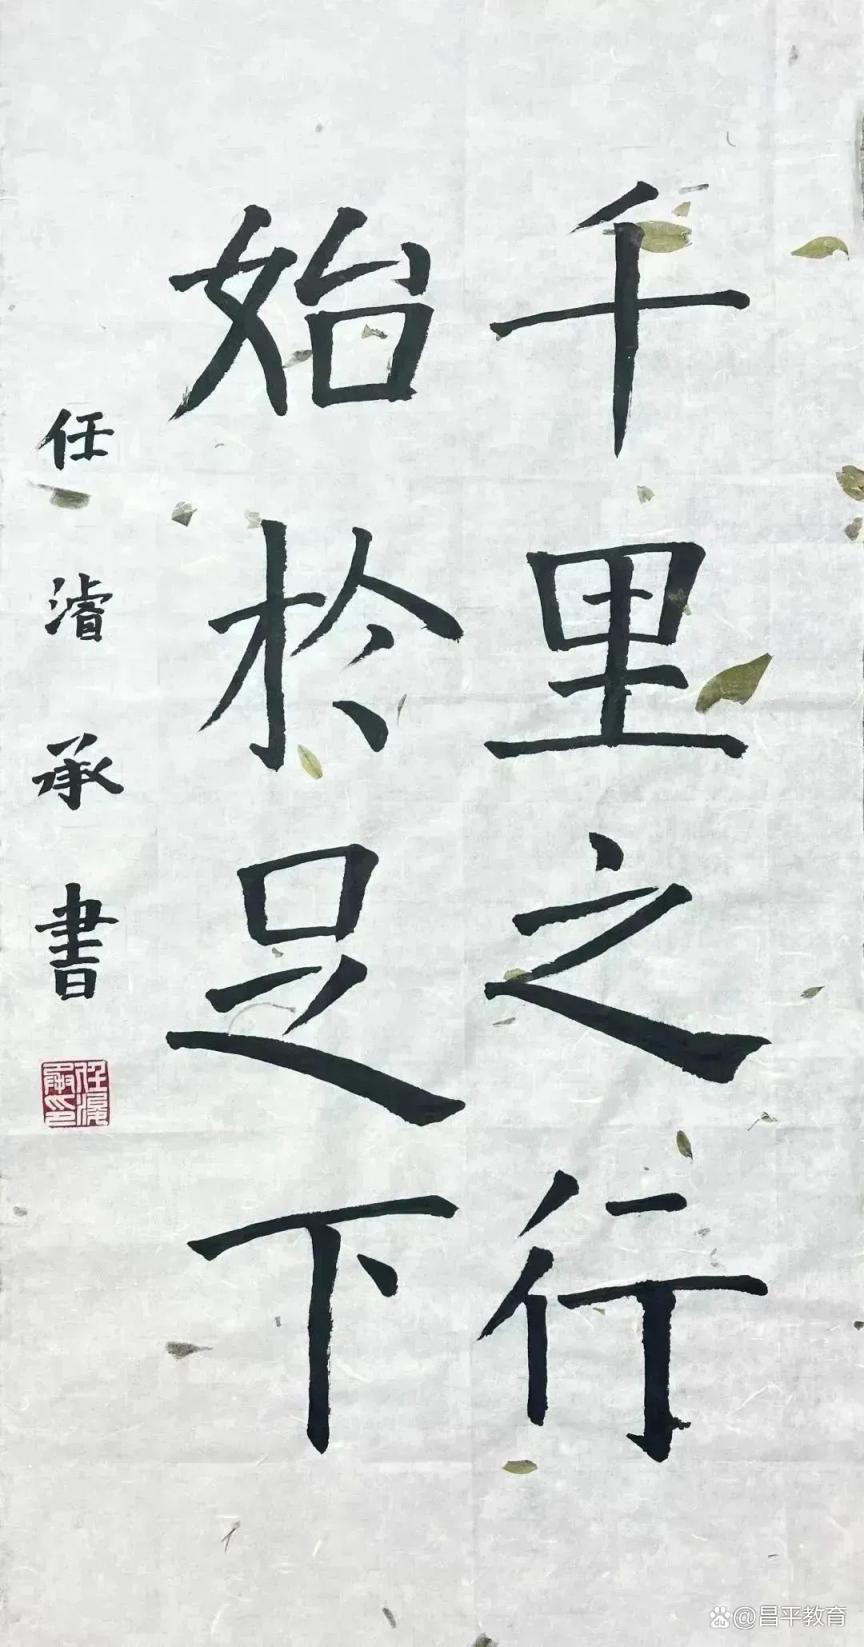 千里之行
始於足下
任濬承書
@昌平教育